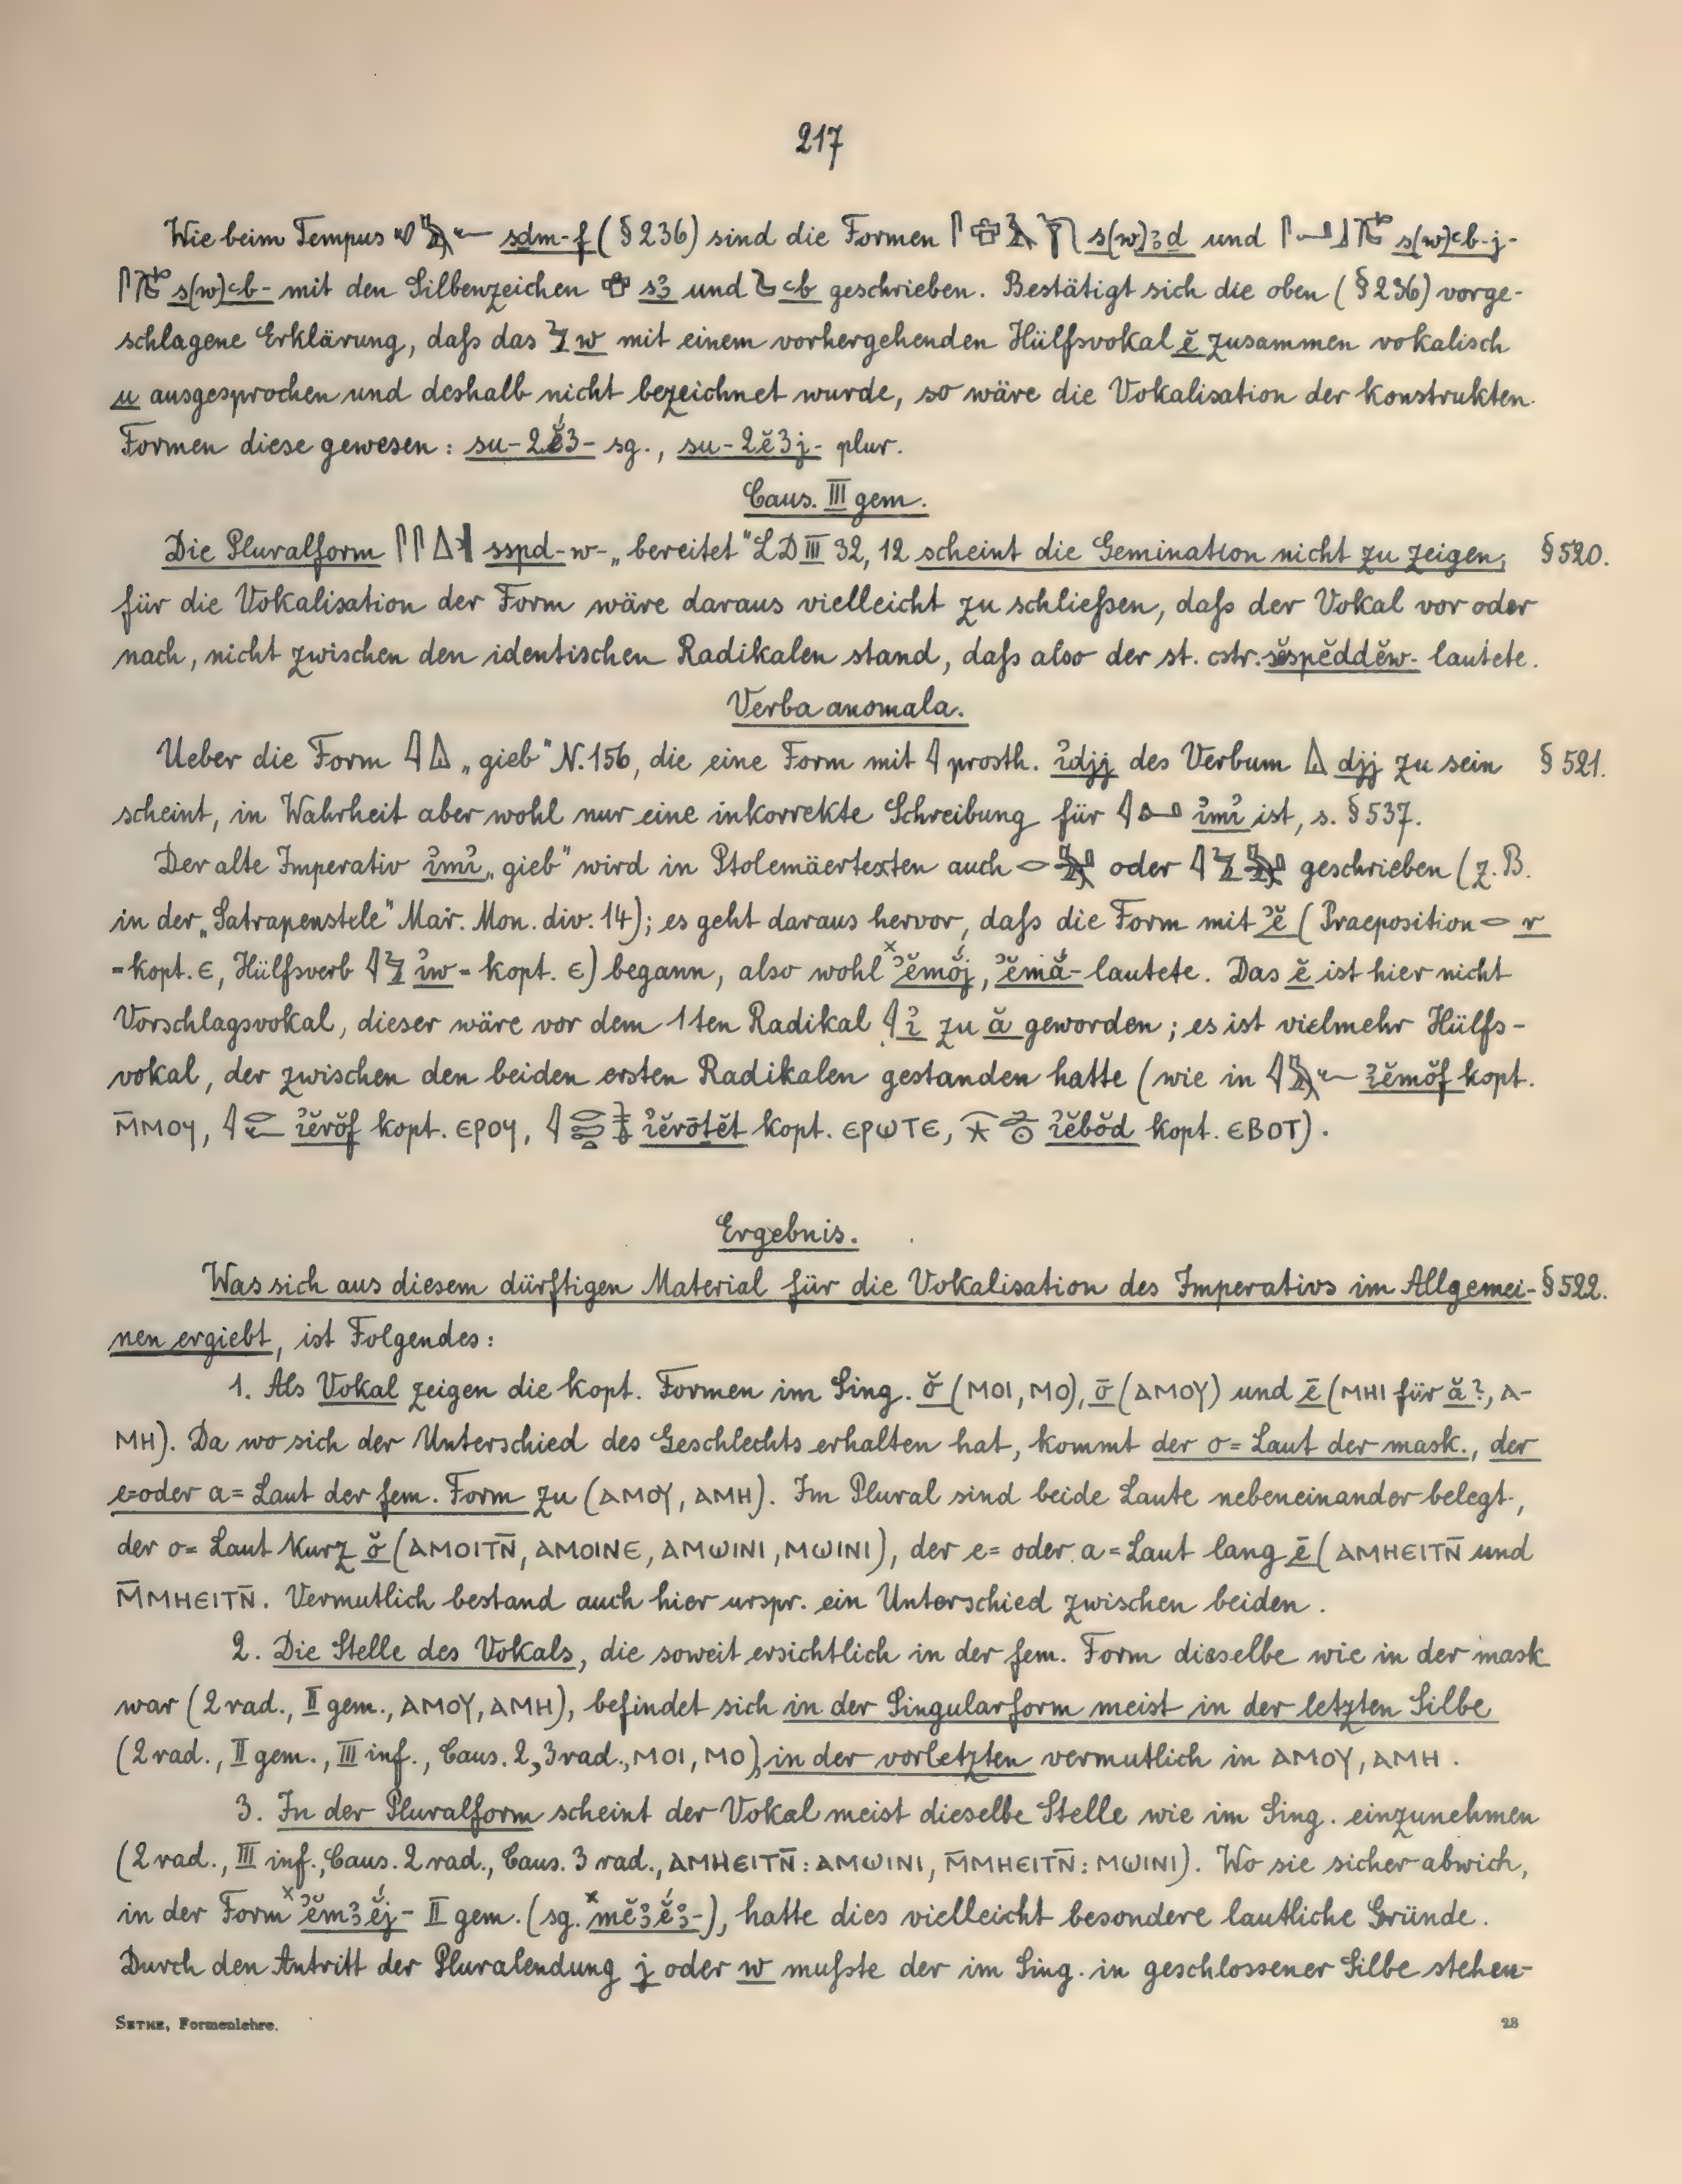 217
Wie beim Tempus sdm-f (§236) sind die Formen s(w)ꜣd und s(w)ꜥb-j-
s(w)ꜥb- mit den Silbenzeichen sꜣ und ꜥb geschrieben. Bestätigt sich die oben (§236) vorge-
schlagene Erklärung, daſs das w mit einem vorhergehenden Hülfsvokal ĕ zusammen vokalisch
u ausgesprochen und deshalb nicht bezeichnet wurde, so wäre die Vokalisation der konstrukten
Formen diese gewesen: su-2ĕ́3- sg., su-2ĕ3j- plur.
Caus. III gem.
Die Pluralform sspd-w- „bereitet" LD III 32, 12 scheint die Gemination nicht zu zeigen; §520.
für die Vokalisation der Form wäre daraus vielleicht zu schlieſsen, daſs der Vokal vor oder
nach, nicht zwischen den identischen Radikalen stand, daſs also der st. cstr. sĕspĕddĕw- lautete.
Verba anomala.
Ueber die Form „gieb" N. 156, die eine Form mit prosth. ꞽdjj des Verbum djj zu sein §521.
scheint, in Wahrheit aber wohl nur eine inkorrekte Schreibung für ꞽmꞽ ist, s. §537.
Der alte Imperativ ꞽmꞽ „gieb" wird in Ptolemäertexten auch oder geschrieben (z. B.
in der „Satrapenstele" Mar. Mon. div. 14); es geht daraus hervor, daſs die Form mit ʾĕ (Praeposition r
= kopt. ⲉ, Hülfsverb ꞽw = kopt. ⲉ) begann, also wohl ˣʾĕmŏ́j, ʾĕmắ- lautete. Das ĕ ist hier nicht
Vorschlagsvokal, dieser wäre vor dem 1ten Radikal ꞽ zu ă geworden; es ist vielmehr Hülfs-
vokal, der zwischen den beiden ersten Radikalen gestanden hatte (wie in ꞽĕmŏf kopt.
ⲙ̄ⲙⲟⲩ, ꞽĕrŏf kopt. ⲉⲣⲟⲩ, ꞽĕrōtĕt kopt. ⲉⲣⲱⲧⲉ, ꞽĕbŏd kopt. ⲉⲃⲟⲧ).
Ergebnis.
Was sich aus diesem dürftigen Material für die Vokalisation des Imperativs im Allgemei- §522.
nen ergiebt, ist Folgendes:
1. Als Vokal zeigen die kopt. Formen im Sing. ŏ (ⲙⲟⲓ, ⲙⲟ), ō (ⲁⲙⲟⲩ) und ē (ⲙⲏⲓ für ă?, ⲁ-
ⲙⲏ). Da wo sich der Unterschied des Geschlechts erhalten hat, kommt der o= Laut der mask., der
e= oder a= Laut der fem. Form zu (ⲁⲙⲟⲩ, ⲁⲙⲏ). Im Plural sind beide Laute nebeneinander belegt,
der o= Laut kurz ŏ (ⲁⲙⲟⲓⲧⲛ̄, ⲁⲙⲟⲓⲛⲉ, ⲁⲙⲱⲓⲛⲓ, ⲙⲱⲓⲛⲓ), der e= oder a= Laut lang ē (ⲁⲙⲏⲉⲓⲧⲛ̄ und
ⲙ̄ⲙⲏⲉⲓⲧⲛ̄. Vermutlich bestand auch hier urspr. ein Unterschied zwischen beiden.
2. Die Stelle des Vokals, die soweit ersichtlich in der fem. Form dieselbe wie in der mask
war (2 rad., II gem., ⲁⲙⲟⲩ, ⲁⲙⲏ), befindet sich in der Singularform meist in der letzten Silbe
(2 rad., II gem., III inf., Caus. 2, 3 rad., ⲙⲟⲓ, ⲙⲟ), in der vorletzten vermutlich in ⲁⲙⲟⲩ, ⲁⲙⲏ.
3. In der Pluralform scheint der Vokal meist dieselbe Stelle wie im Sing. einzunehmen
(2 rad., III inf., Caus. 2 rad., Caus. 3 rad., ⲁⲙⲏⲉⲓⲧⲛ̄: ⲁⲙⲱⲓⲛⲓ, ⲙ̄ⲙⲏⲉⲓⲧⲛ̄: ⲙⲱⲓⲛⲓ). Wo sie sicher abwich,
in der Form ˣʾĕmꜣĕ́j- II gem. (sg. ˣmĕꜣĕ́ꜣ-), hatte dies vielleicht besondere lautliche Gründe.
Durch den Antritt der Pluralendung j oder w muſste der im Sing. in geschlossener Silbe stehen-
SETHE, Formenlehre. 28